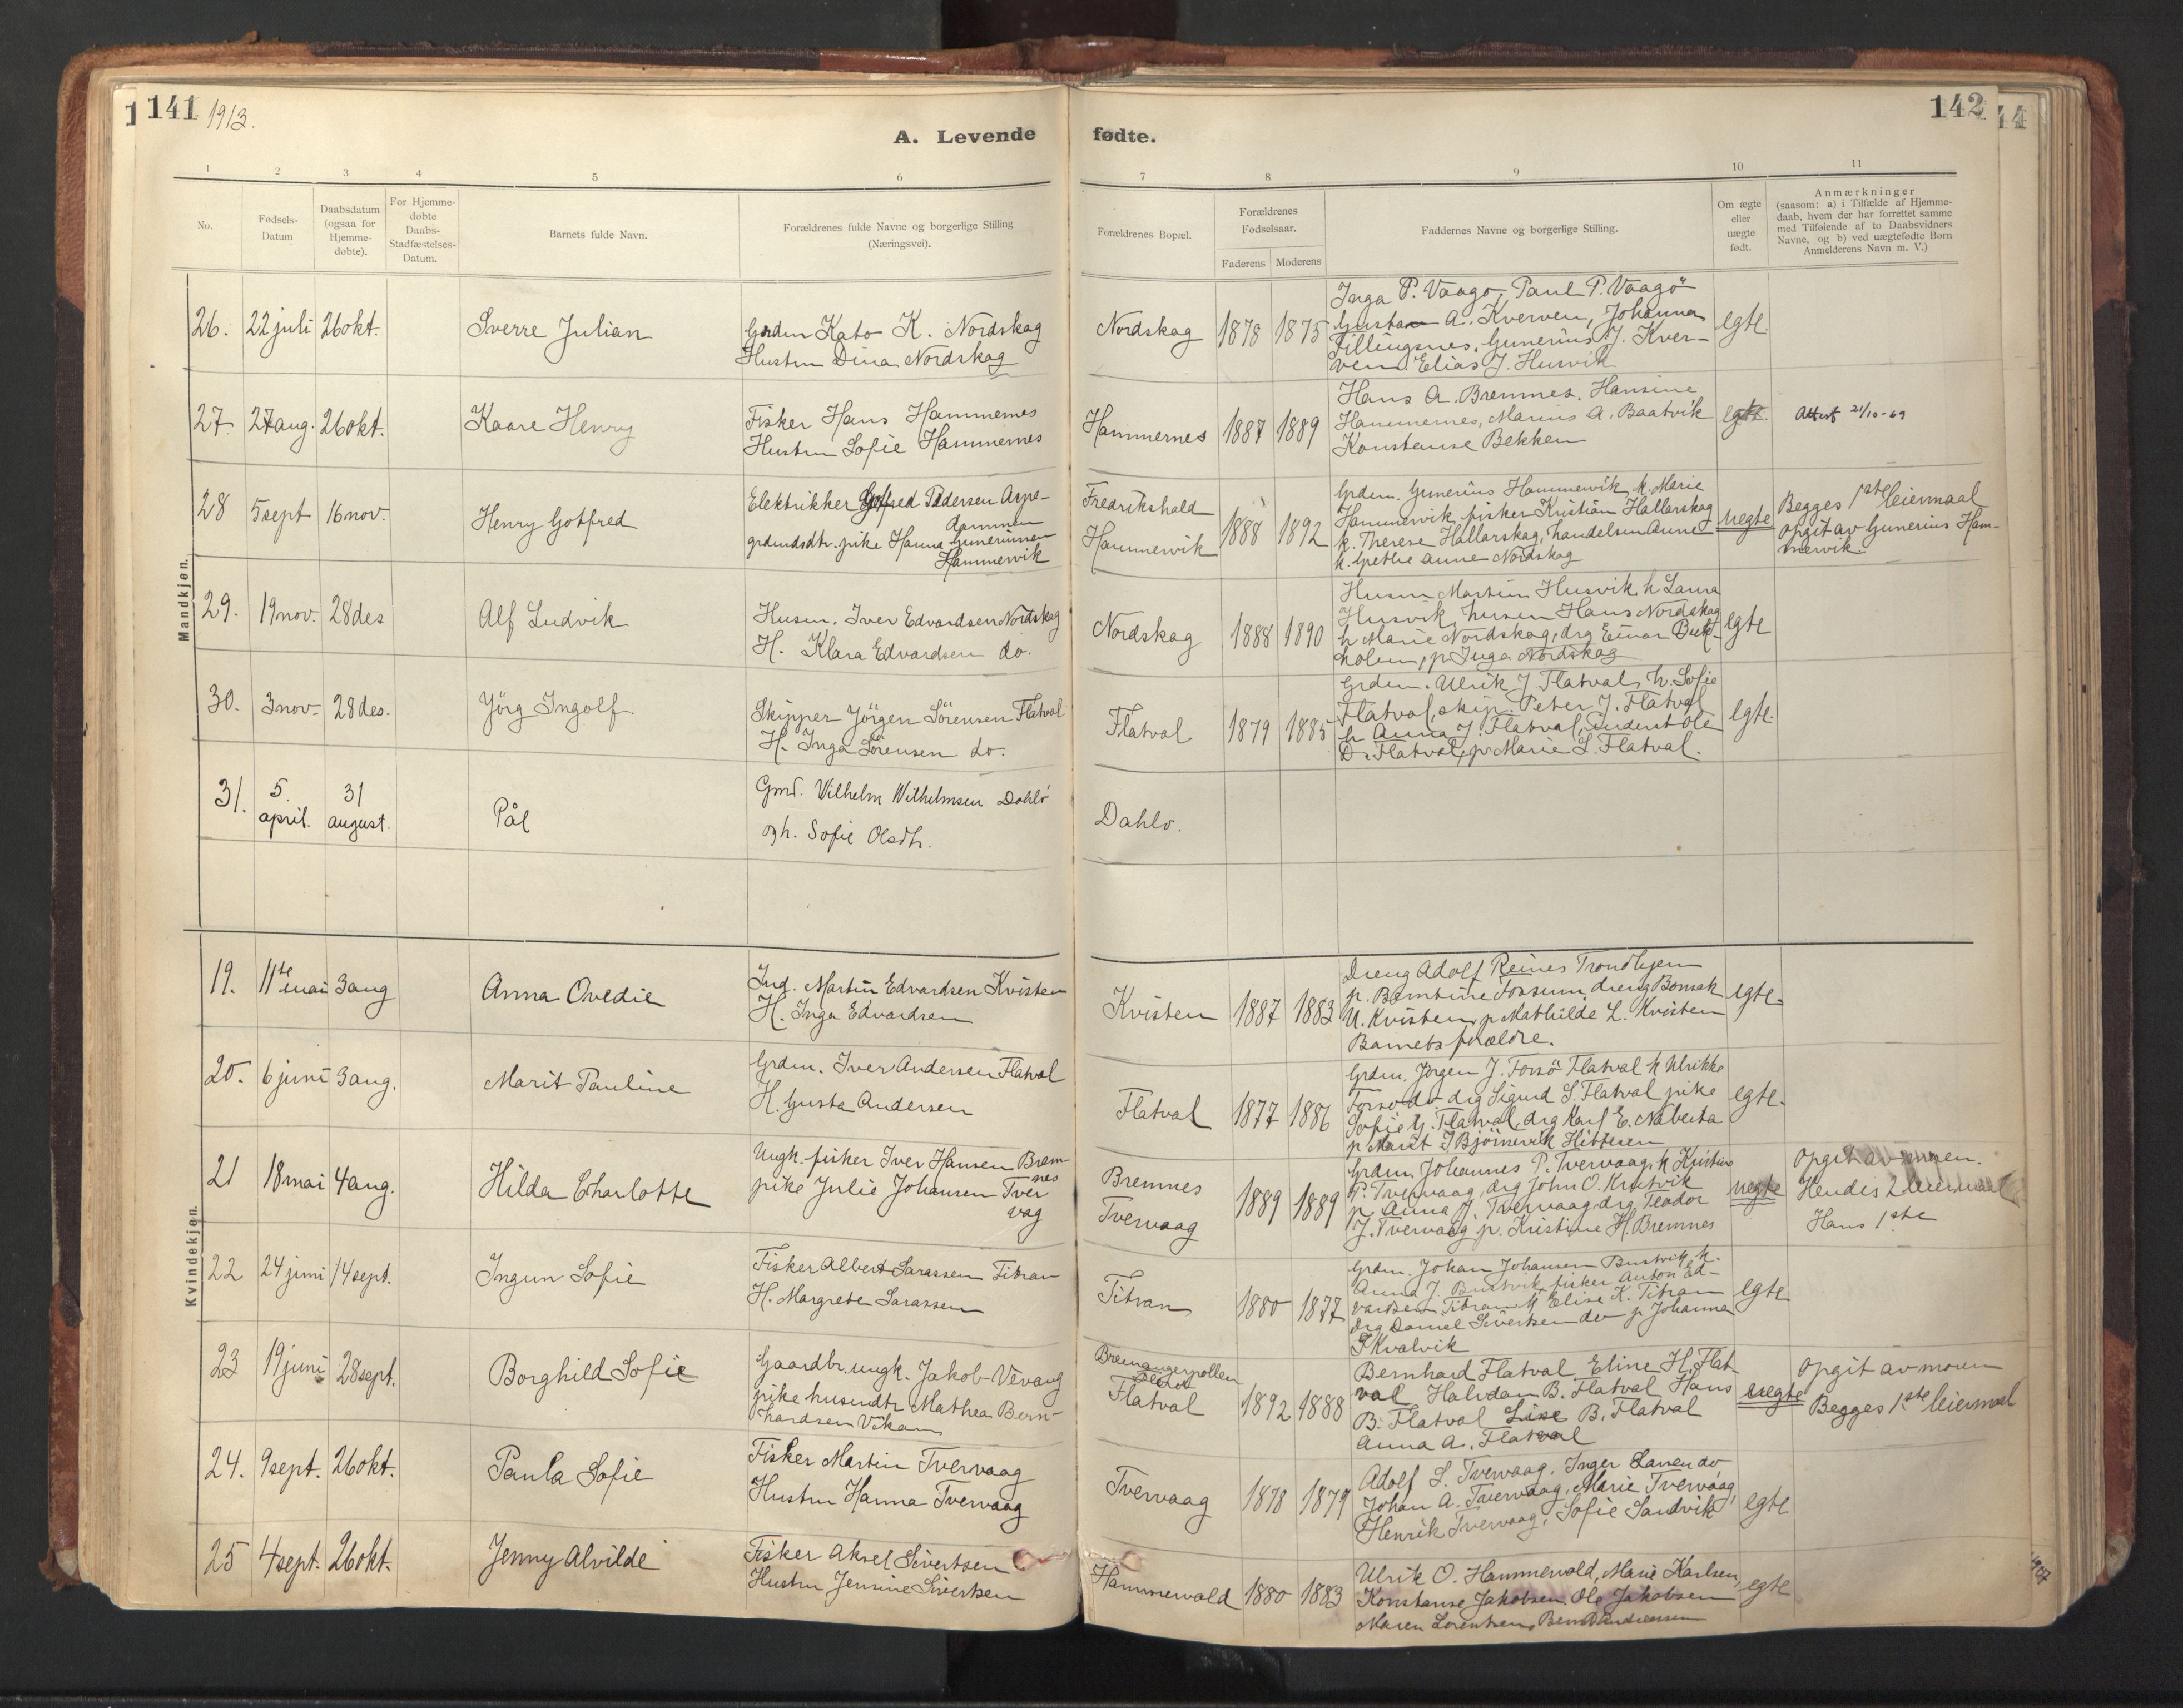 141 1913.
142
44
A. Levende fødte.
1 2 3 4 5 6 7 8 9 10 11
No.
Fødsels-
Datum
Daabsdatum
(ogsaa for
Hjemme-
døbte).
For Hjemme-
døbte
Daabs-
Stadfæstelses-
Datum.
Barnets fulde Navn.
Forældrenes fulde Navne og borgerlige Stilling
(Næringsvei).
Forældrenes Bopæl.
Forældrenes
Fødselsaar.
Faderens Moderens
Faddernes Navne og borgerlige Stilling.
Om ægte
eller
uægte
født.
Anmærkninger
(saasom: a) i Tilfælde af Hjemme-
daab, hvem der har forrettet samme
med Tilføiende af to Daabsvidners
Navne, og b) ved uægtefødte Børn
Anmelderens Navn m. V.)
Mandkjøn.
26. 22 juli 26 okt. Sverre Julian
Grdm Kato K. Nordskag
Hustru Dina Nordskag
Nordskag 1878 1875
Inga P. Vaagø, Paul P. Vaagö
Gustav A. Kverven, Johanna
Fillingsnes, Gunerius J. Kver-
ven Elias J. Husvik
egte.
27. 27 aug. 26 okt. Kaare Henry
Fisker Hans Hammernes
Hustru Sofie Hammernes
Hammernes 1887 1889
Hans A. Bremnes, Hansine
Hammernes, Marius A. Baatvik
Konstanse Bekken
egte.
Attest 21/10-69
28 5 sept 16 nov. Henry Gotfred
Elektrikker Gotfred Pedersen Aspe-
dammen
grdmdsdtr. pike Hanna Guneriussen
Hammervik
Fredrikshald
Hammervik
1888 1892
Grdm. Gunerius Hammervik, k. Marie
Hammervik fisker Kristian Hallarskag
k. Therese Hallarskag, handelsm Arne
k. Grethe Anne Nordskag
uegte
Begges 1ste leiermaal
opgit av Gunerius Ham-
mervik.
29. 19 nov. 28 des Alf Ludvik
Husm. Iver Edvardsen Nordskag
H. Klara Edvardsen do.
Nordskag 1888 1890
Husm Martin Husvik h Laura
Husvik, husm Hans Nordskag
h Marie Nordskag, drg Einar Buk-
holm, p Inga Nordskag
egte
30. 3 nov. 28 des. Jörg Ingolf
Skipper Jörgen Sörensen Flatval
H. Inga Sörensen do.
Flatval 1879 1885
Grdm. Ulrik J. Flatval, h. Sofie
Flatval, skip. Peter J. Flatval
h Anna J. Flatval, student Ole
D. Flatval, p Marie S. Flatval.
egte.
31. 5. april. 31 august. Pål
Gmd. Vilhelm Wilhelmsen Dahlö
og h. Sofie Olsdtr.
Dahlö.
Kvindekjøn.
19. 11te mai 3 aug Anna Ovedie
Ind. Martin Edvardsen Kvisten
H. Inga Edvardsen
Kvisten 1887 1883
Dreng Adolf Reines Trondhjem
p. Berntine Fossum, dreng Bonsak
U. Kvisten p Mathilde L. Kvisten
Barnets forældre.
egte.
20. 6 juni 3 aug. Marit Pauline
Grdm. Iver Andersen Flatval
H. Gusta Andersen
Flatval 1877 1886
Grdm. Jörgen J. Forsö Flatval h Ulrikke
Forsö do drg Sigurd S. Flatval pike
Sofie G. Flatval, drg Karl E. Nabeita
p Marit J Björnevik Hitteren
egte.
21 18 mai 4 aug. Hilda Charlotte
Ungk. fisker Iver Hansen Brem-
nes
pike Julie Johansen Tver
vag
Bremnes
Tvervaag
1889 1889
Grdm. Johannes P. Tvervaag, k Kristine
P. Tvervaag, drg John O. Krutvik
p. Anna J. Tvervaag drg Teodor
J. Tvervaag p. Kristine H. Bremnes
uegte
Opgit av moren.
Hendes 2 leiermaal
Hans 1ste
22 24 juni 14 sept. Ingun Sofie
Fisker Albert Sarassen Titran
H. Margrete Sarassen
Titran 1880 1877
Grdm. Johan Johansen Bustvik, k.
Anna J. Bustvik, fisker Anton Ed-
vardsen Titran k Elise K. Titran
drg Daniel Sivertsen do p Johanna
S Kvalvik
egte
23 19 juni 28 sept. Borghild Sofie
Gaardbr. ungk. Jakob Vevang
pike husmdtr Mathea Bern-
hardsen Vikan
Bremangerpollen
Flatval
1892 1888
Bernhard Flatval Eline H. Flat
val Halvdan B. Flatval Hans
B. Flatval Lise B. Flatval
Anna A. Flatval
uegte
Opgit av moren
Begges 1ste leiermaal
24. 9 sept. 26 okt. Paula Sofie
Fisker Martin Tvervaag
Hustru Hanna Tvervaag
Tvervaag 1878 1879
Adolf L. Tvervaag, Inger Larsen do
Johan A. Tvervaag, Marie Tvervaag,
Henrik Tvervaag, Sofie Sandvik
egte
25 4 sept. 26 okt. Jenny Alvilde
Fisker Aksel Sivertsen
Hustru Jensine Sivertsen
Hammervold 1880 1883
Ulrik O. Hammervold, Marie Karlsen,
Konstanse Jakobsen, Ole Jakobsen
Maren Lorentsen, Bernt Andreassen
egte